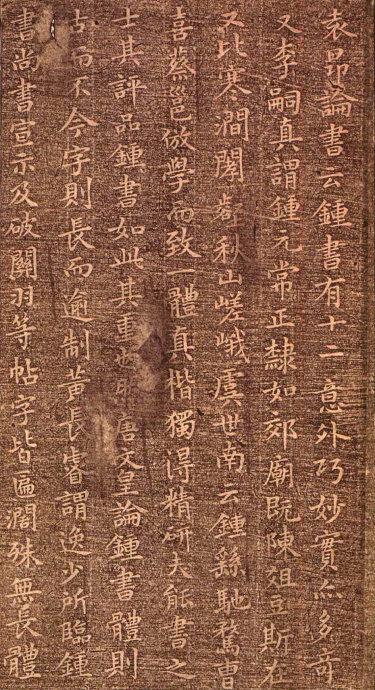 袁昂論書云鍾書有十二意外巧妙實亦多奇
又李嗣真謂鍾元常正隸如郊廟既陳俎豆斯在
又比寒澗閴壑秋山嵯峨虞世南云鍾繇馳騖曹
喜蔡邕倣學而致一體真楷獨得精研夫能書之
士其評品鍾書如此其重唐文皇論鍾書體則
古而不今字則長而逾制黃長睿謂逸少所臨鍾
書尚書宣示及破關羽等帖字皆匾濶殊無長體